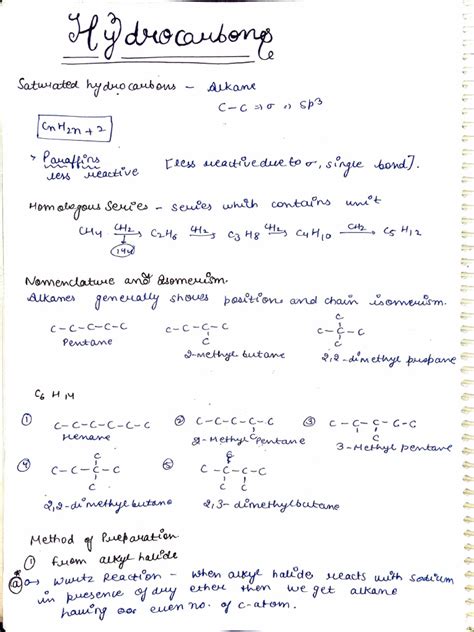 Hydrocarbons
Saturated hydrocarbons - Alkane
C-C ⇒ σ ⇒ sp3
CnH2n+2
> Paraffins [less reactive due to σ, single bond].
less reactive
Homologous Series - series which contains unit
CH4 CH2→ C2H6 CH2→ C3H8 CH2→ C4H10 CH2→ C5H12
14u
Nomenclature and Isomerism.
Alkanes generally shows position and chain isomerism.
C-C-C-C-C
Pentane
C-C-C-C
C
2-methyl butane
C
C-C-C
C
2,2-dimethyl propane
C6H14
① C-C-C-C-C-C
Hexane
② C-C-C-C-C
C
2-Methyl Pentane
③ C-C-C-C-C
C
3-Methyl pentane
④ C
C-C-C-C
C
2,2-dimethyl butane
⑤ C
C-C-C-C
C
2,3-dimethylbutane
Method of Preparation
① From alkyl halide
ⓐ → Wurtz Reaction - when alkyl halide reacts with sodium
in presence of dry ether then we get alkane
having even no. of c-atom.